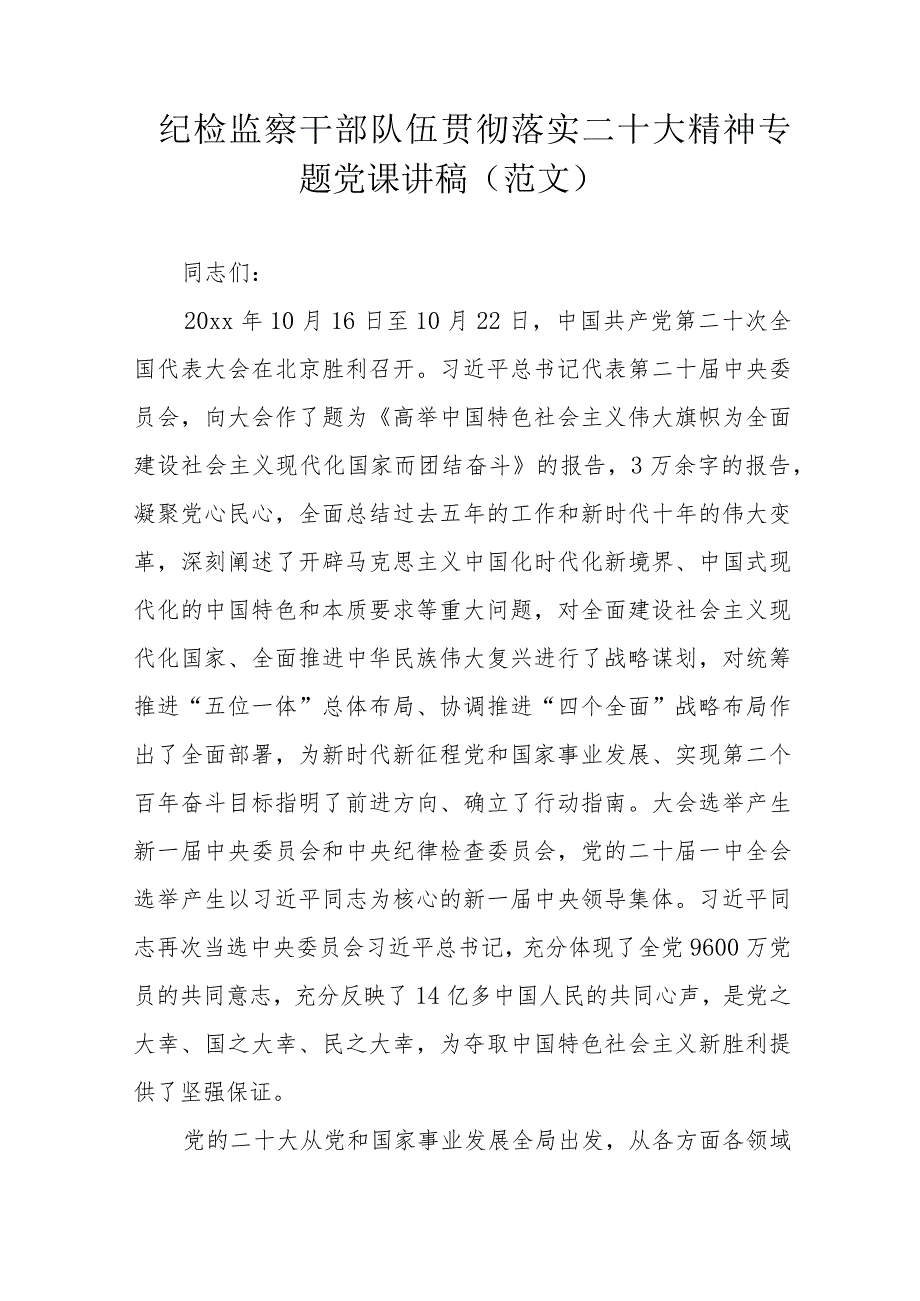 纪检监察干部队伍贯彻落实二十大精神专
题党课讲稿（范文）
同志们：
20xx 年 10 月 16 日至 10 月 22 日，中国共产党第二十次全
国代表大会在北京胜利召开。习近平总书记代表第二十届中央委
员会，向大会作了题为《高举中国特色社会主义伟大旗帜为全面
建设社会主义现代化国家而团结奋斗》的报告，3 万余字的报告，
凝聚党心民心，全面总结过去五年的工作和新时代十年的伟大变
革，深刻阐述了开辟马克思主义中国化时代化新境界、中国式现
代化的中国特色和本质要求等重大问题，对全面建设社会主义现
代化国家、全面推进中华民族伟大复兴进行了战略谋划，对统筹
推进“五位一体”总体布局、协调推进“四个全面”战略布局作
出了全面部署，为新时代新征程党和国家事业发展、实现第二个
百年奋斗目标指明了前进方向、确立了行动指南。大会选举产生
新一届中央委员会和中央纪律检查委员会，党的二十届一中全会
选举产生以习近平同志为核心的新一届中央领导集体。习近平同
志再次当选中央委员会习近平总书记，充分体现了全党 9600 万党
员的共同意志，充分反映了 14 亿多中国人民的共同心声，是党之
大幸、国之大幸、民之大幸，为夺取中国特色社会主义新胜利提
供了坚强保证。
党的二十大从党和国家事业发展全局出发，从各方面各领域